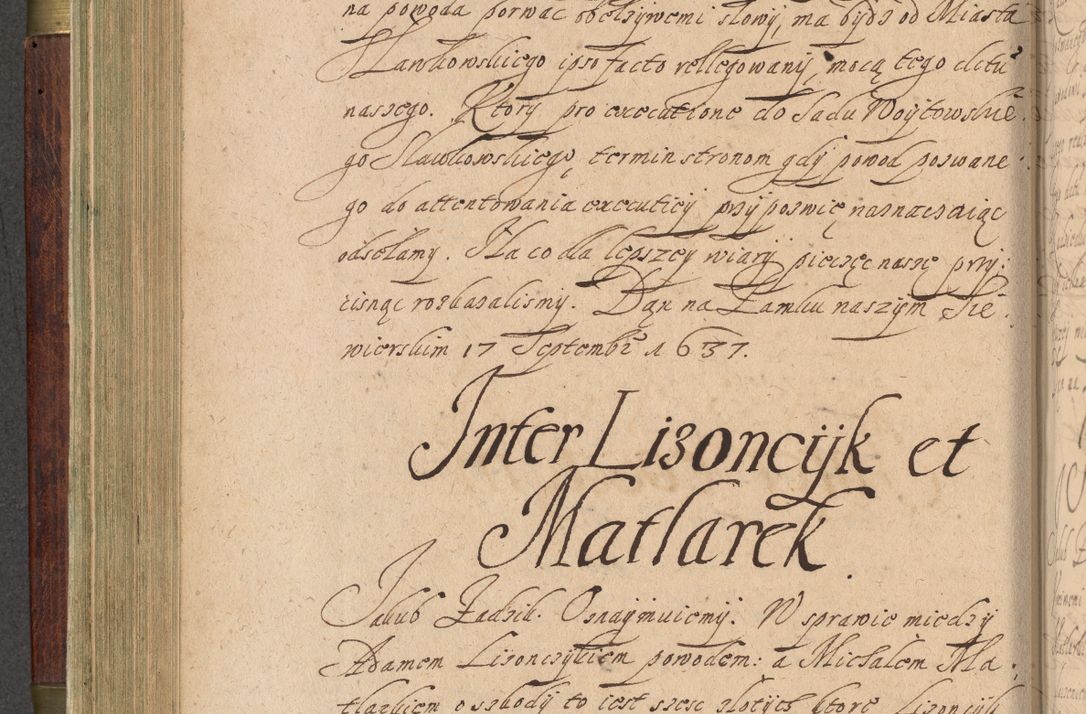 na powoda porwac obelzywemi słowy, ma bydz od Miasta
Sławkowskiego ipso facto rellegowany, mocą tego detu
naszego. Ktory pro executione do Sadu Woytowskie
go Sławkowskiego termin stronom gdy powod poswane
go do attentowania executiey przy poswię naznaczaiąc
odsełamy. Na co dla lepszey wiary pieczęc naszę przy:
cisnąc roskazalismy. Dan na Zamku naszym Sie
wierskim 17 Septembr 1637.
Inter Lizoncijk et
Matlarek.
Jakub Zadzik. Oznaymuiemy. W sprawie miedzy
Adamem Lizonczykiem powodem: a Michałem Ma
tlarkiem o szkody to iest szesc złotych ktore Lizoncyk